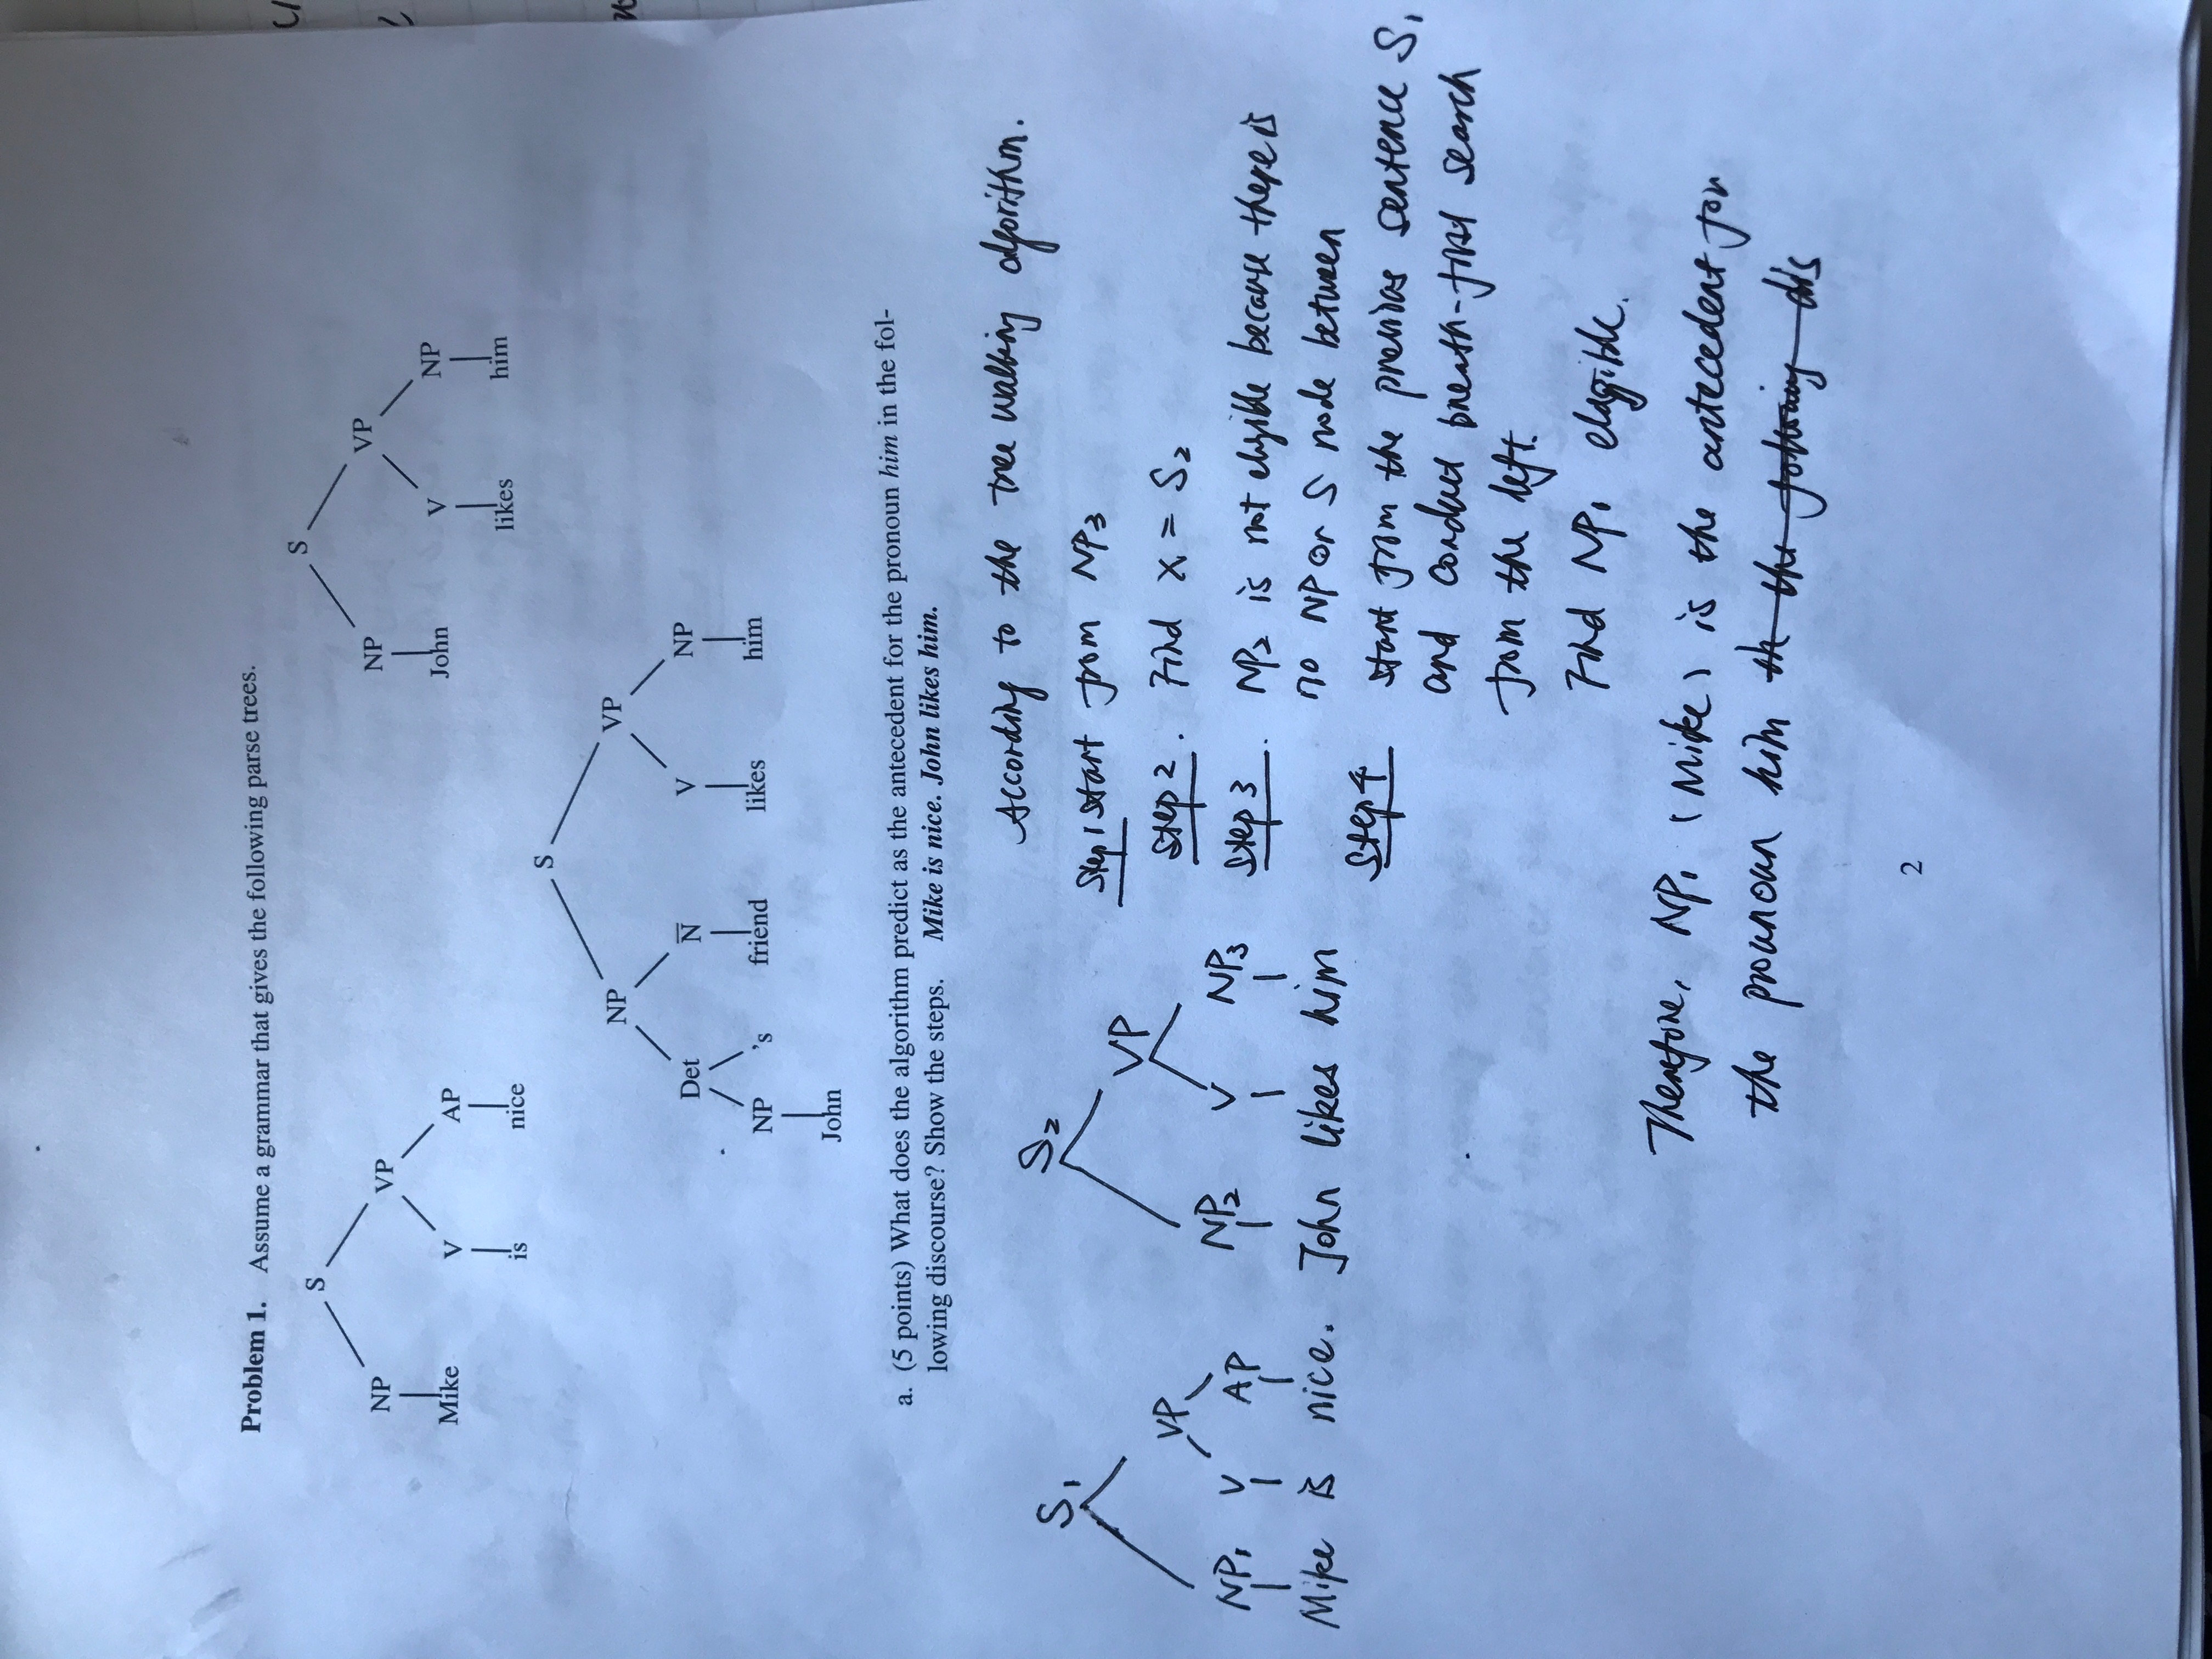 Problem 1. Assume a grammar that gives the following parse trees.
S
NP VP
Mike V AP
is nice
S
NP VP
John V NP
likes him
S
NP VP
Det N̅ V NP
NP 's friend likes him
John
a. (5 points) What does the algorithm predict as the antecedent for the pronoun him in the fol-
lowing discourse? Show the steps. Mike is nice. John likes him.
According to the tree walking algorithm.
S₁
VP
NP₁ V AP
Mike is nice.
S₂
VP
NP₂ V NP₃
John likes him
Step 1 Start from NP₃
Step 2. Find X = S₂
Step 3. NP₂ is not eligible because there is
no NP or S node between
Step 4 start from the previous sentence S₁
and conduct breath-first search
from the left.
Find NP₁ elagible.
Therefore, NP₁ (Mike) is the antecedent for
the prounoun him in the following dis
2